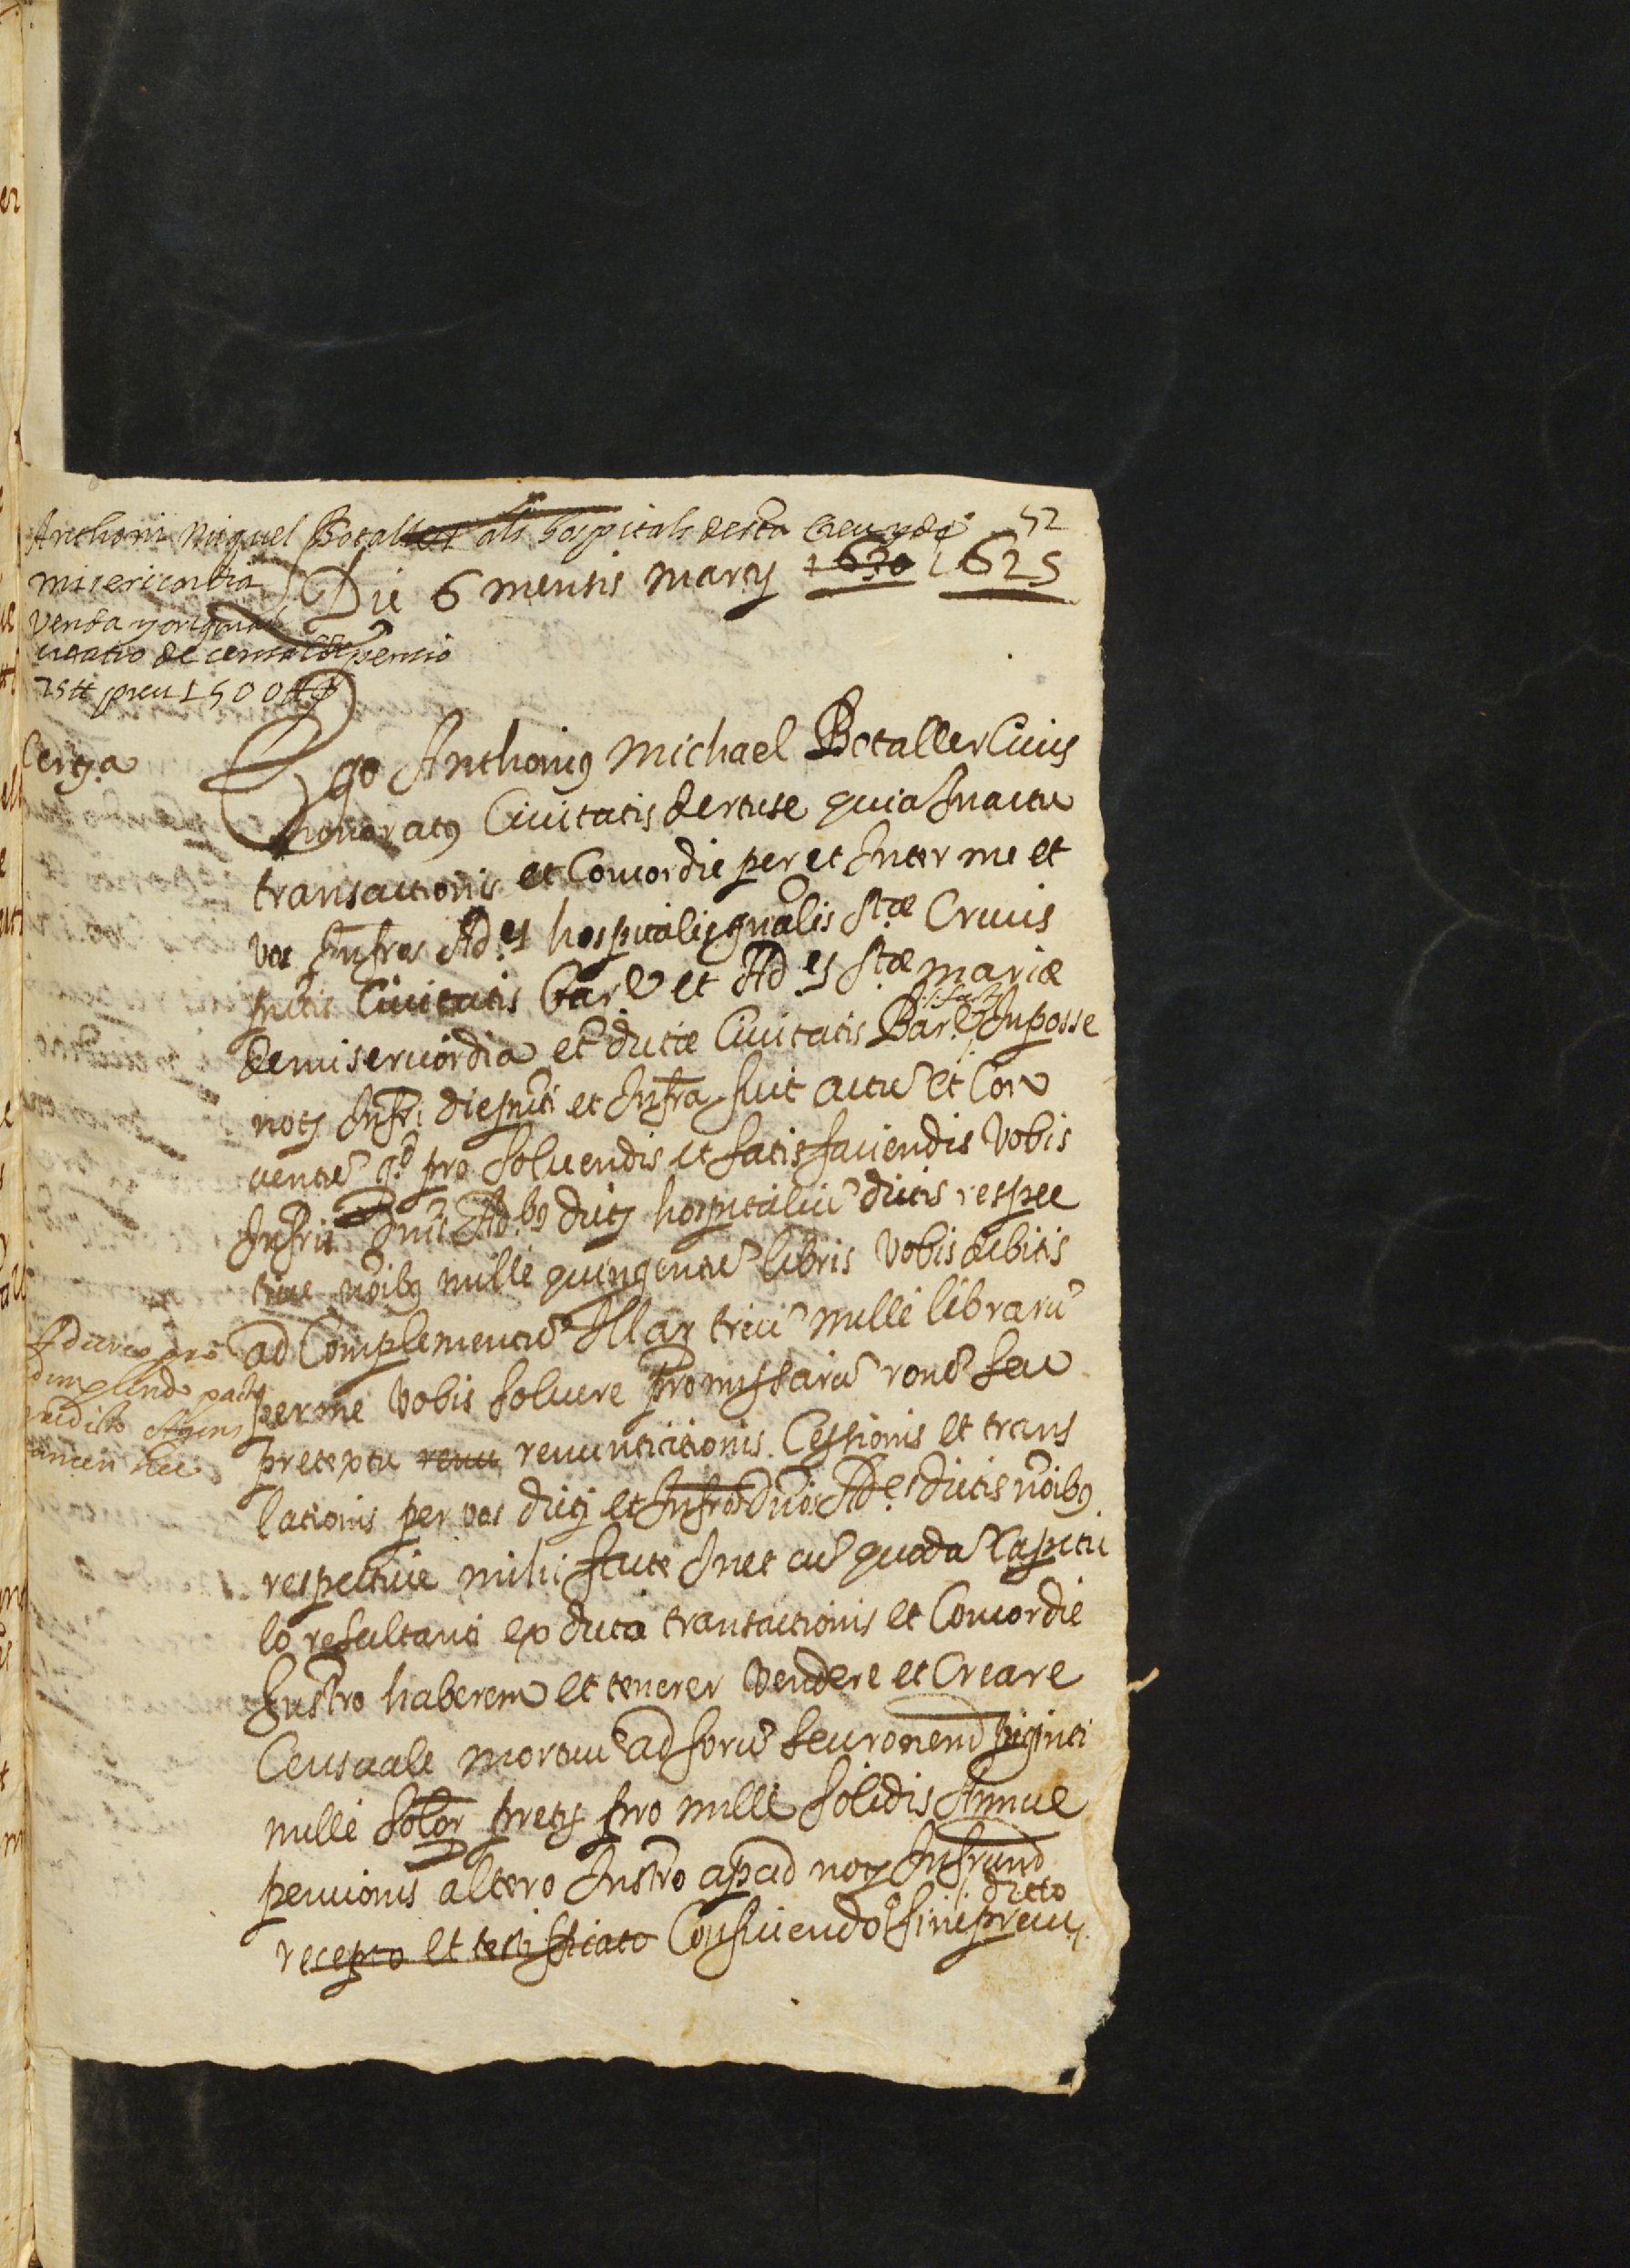 52
Anthoni Miquel Botaller als hospitals de sta Creu y de
misericordia
venda y original
creatio de censal de pensio
75 ħ preu 1500 ħ
Die 6 mensis marty 1630 1625
Certa
Ego Anthonius Michael Botaller Civis
honoratus Civitatis dertuse quia In actu
transactionis et Concordie per et Inter me et
vos Infros Ad.es hospitalis gnalis Stæ Crucis
pntis Civitatis Barc et Ad.es Stæ mariæ
de misericordia et dictæ Civitatis Barc In posse
noty Infri die pnti et Infra fuit actu et Con
ventu qd pro solvendis et satisfaciendis vobis
Infris Dnis Ad.bus dicty hospitaliu dictis respec
tive noibus mille quingentu libris vobis debitis
ad Complementu Illar triu mille libraru
per me vobis solvere promissaru rone seu
pretextu renu renunciationis Cessionis et trans
lationis per vos dictis et Infros Dnos Ad.es dictis noibus
respective mihi facte Inet cu quoda Capitu
lo resultanti ex dicta transactionis et Concordie
Instro haberem et tenerer vendere et Creare
Censuale mortuu ad foru seu ronem viginti
mille solor pretii pro mille solidis Annue
pencionis altero Instro apud noty Infrum
dicto
recepto et testificato Conficiendo sine preciis
Ad ureo pro
dimplendo pacto
predicto
tamen hec